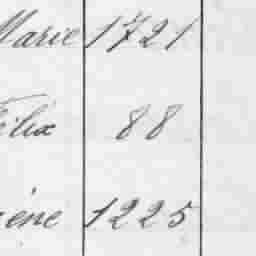 Marie 1721
Félix 88
ène 1225